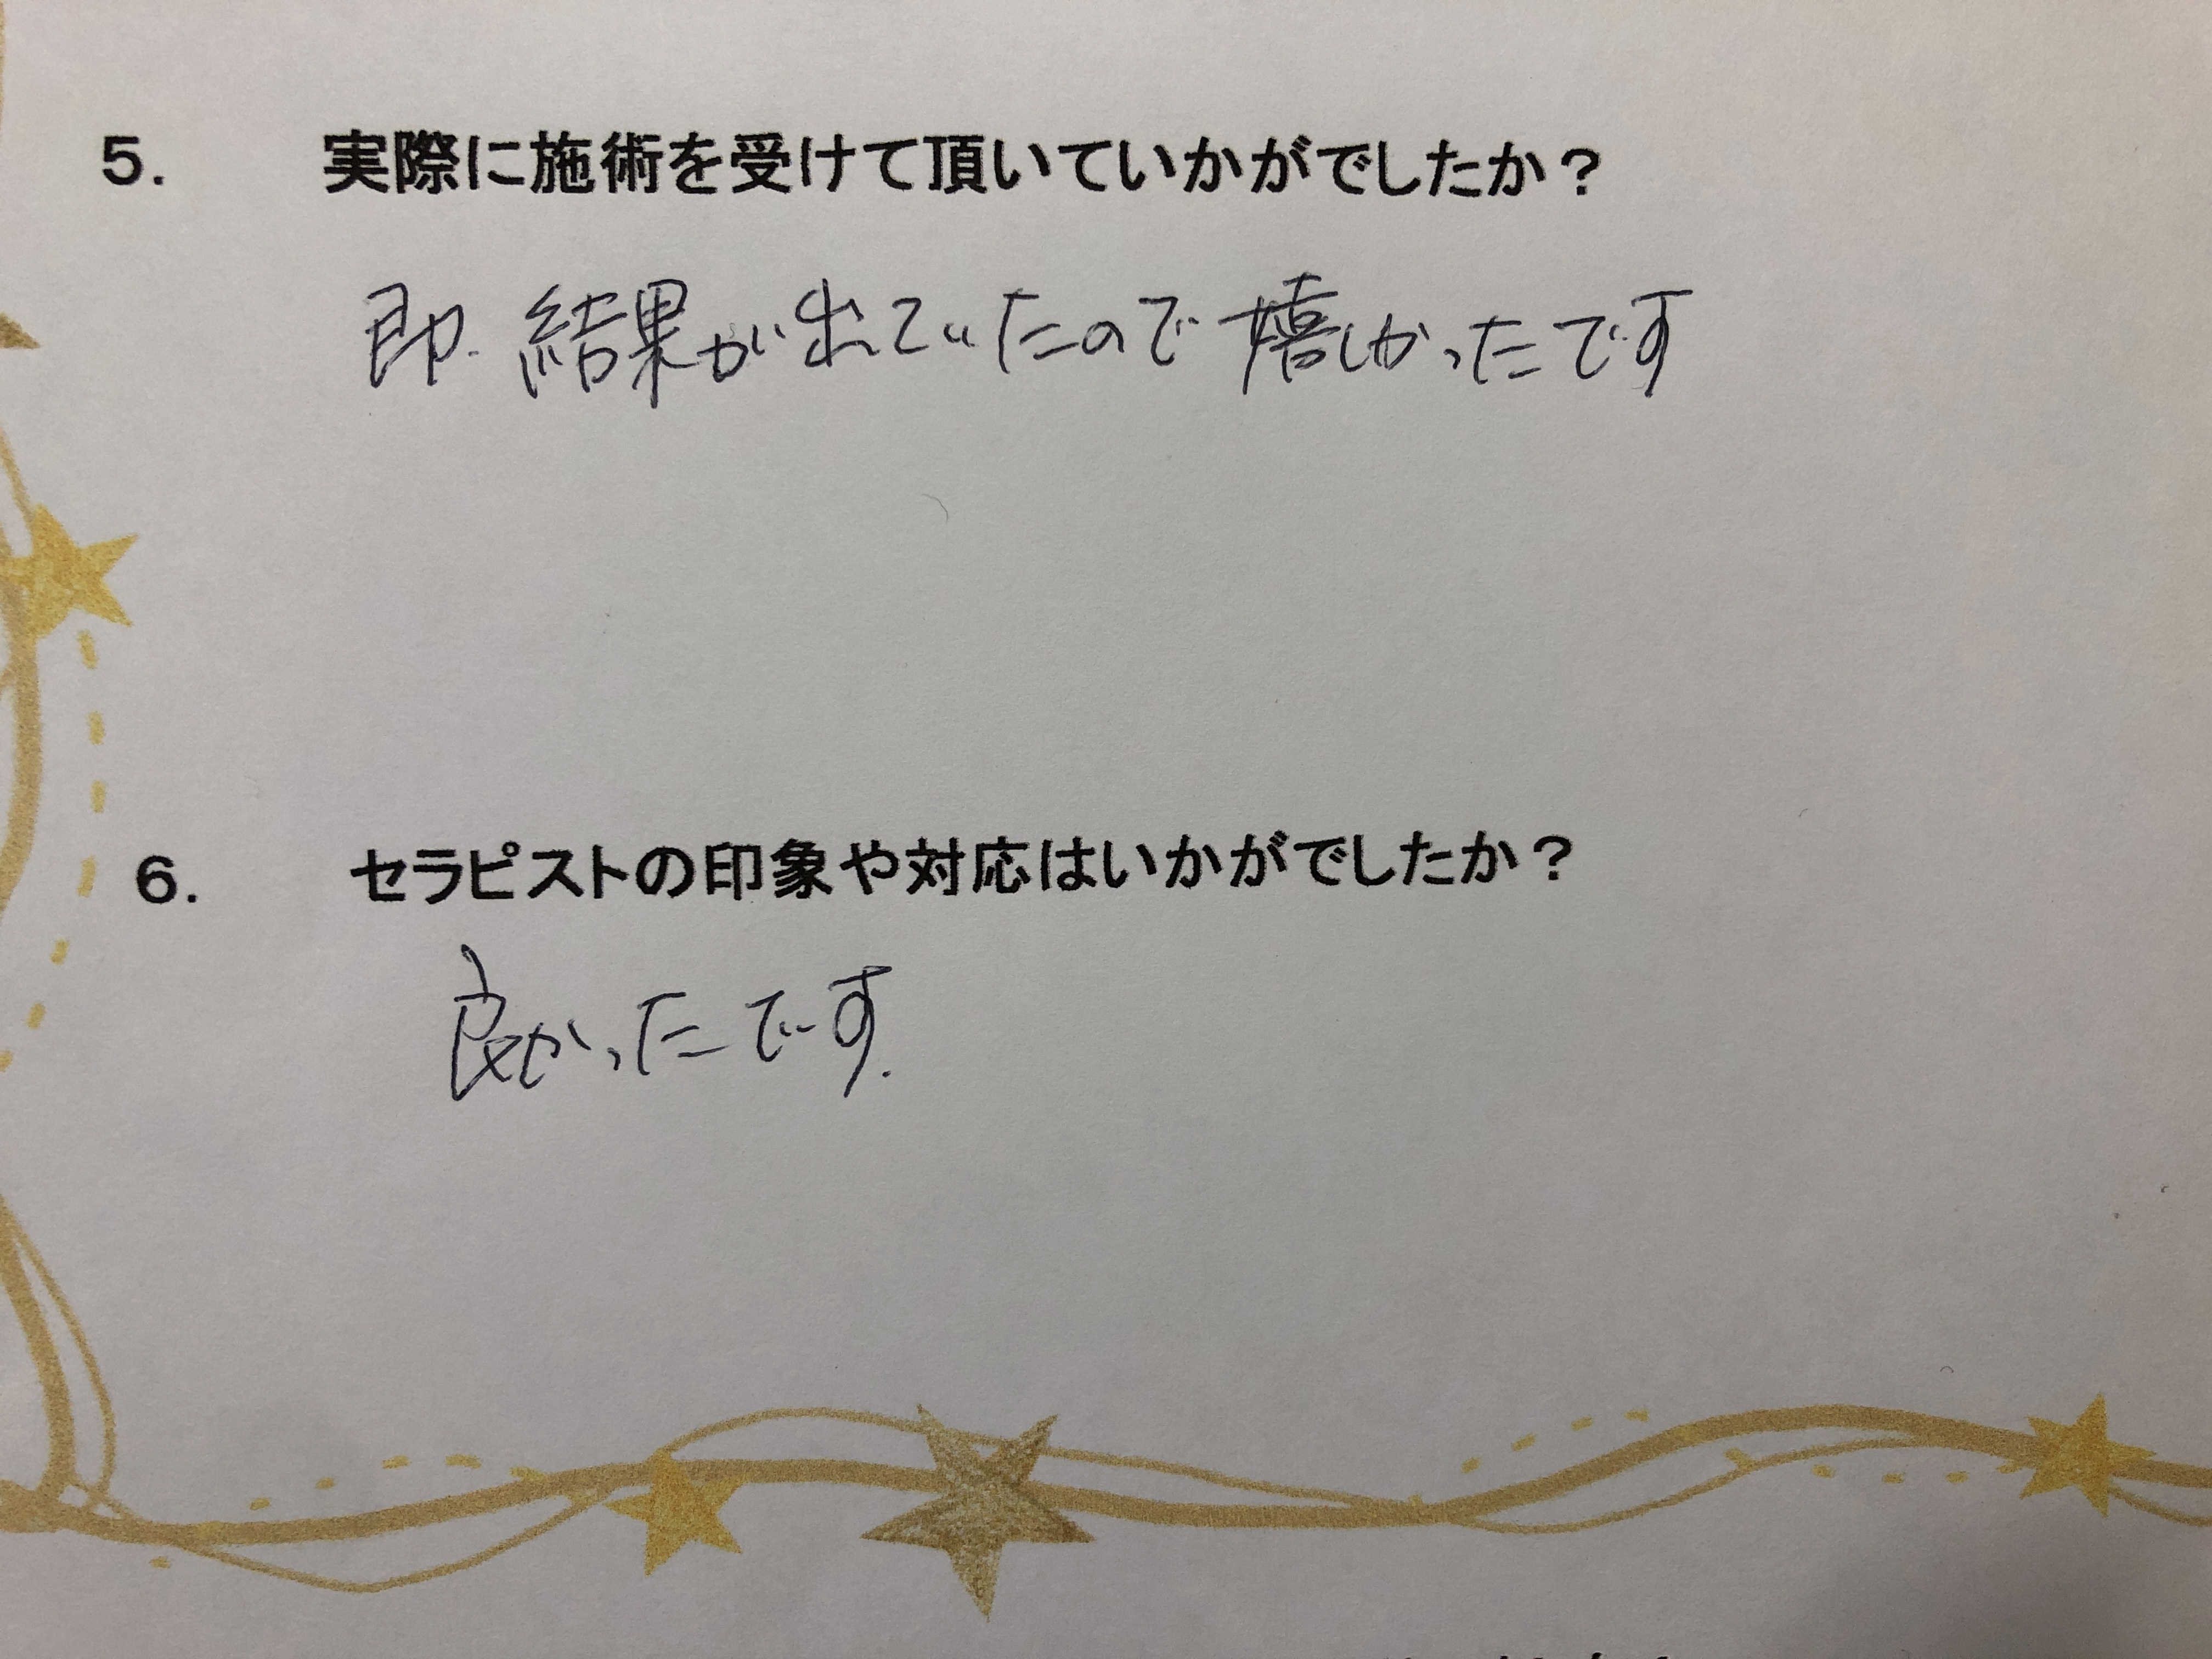 5. 実際に施術を受けて頂いていかがでしたか？
即、結果が出ていたので嬉しかったです
6. セラピストの印象や対応はいかがでしたか？
良かったです.